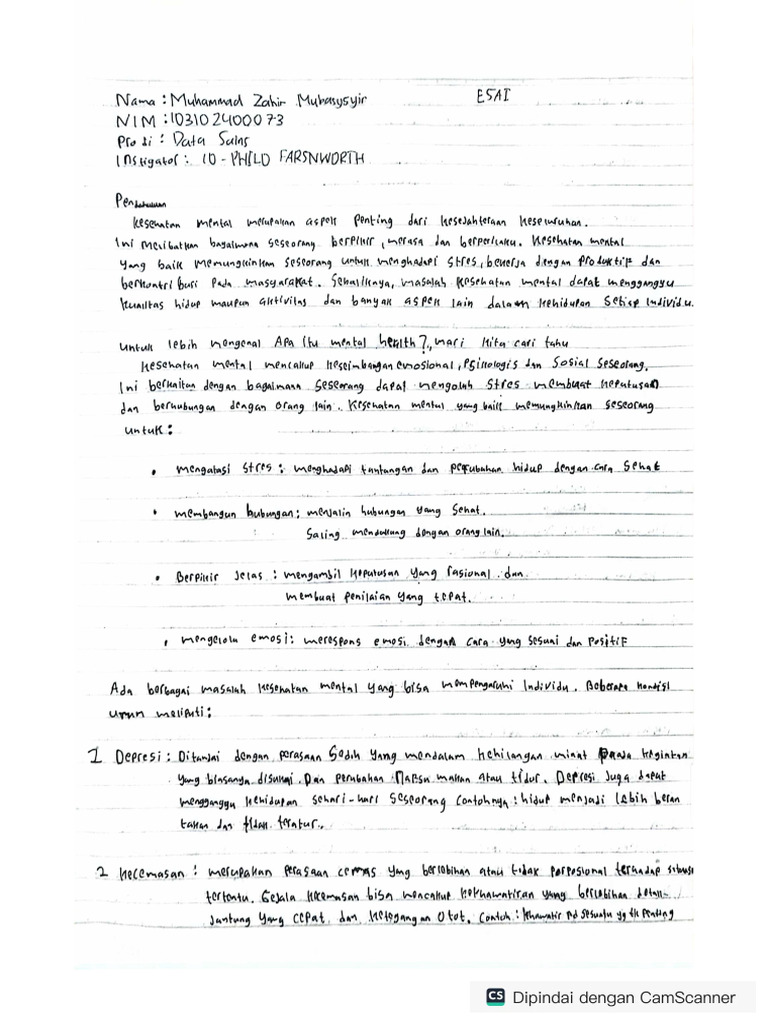 ESAI
Nama : Muhammad Zahir Mubasysyir
NIM : 103102400073
Prodi : Data Sains
Instigator : 10 - PHILO FARSNWORTH
Kesehatan mental merupakan aspek penting dari kesejahteraan keseluruhan.
Ini melibatkan bagaimana seseorang berpikir, merasa dan berperilaku. Kesehatan mental
yang baik memungkinkan seseorang untuk menghadapi stres, bekerja dengan produktif dan
berkontribusi pada masyarakat. Sebaliknya, masalah kesehatan mental dapat mengganggu
kualitas hidup maupun aktivitas dan banyak aspek lain dalam kehidupan setiap individu.
Untuk lebih mengenal Apa itu mental health?, mari kita cari tahu
Kesehatan mental mencakup keseimbangan emosional, psikologis dan sosial seseorang.
Ini berkaitan dengan bagaimana seseorang dapat mengolah stres membuat keputusan
dan berhubungan dengan orang lain. Kesehatan mental yang baik memungkinkan seseorang
untuk :
• mengatasi stres : menghadapi tantangan dan perubahan hidup dengan cara sehat
• membangun hubungan : menjalin hubungan yang sehat.
saling mendukung dengan orang lain.
• Berpikir jelas : mengambil keputusan yang rasional dan
membuat penilaian yang tepat.
• mengelola emosi : merespons emosi dengan cara yang sesuai dan positif
Ada berbagai masalah kesehatan mental yang bisa mempengaruhi individu. Beberapa kondisi
umum meliputi :
1 Depresi : Ditandai dengan perasaan sedih yang mendalam kehilangan minat pada kegiatan
yang biasanya disukai. Dan perubahan nafsu makan atau tidur. Depresi juga dapat
mengganggu kehidupan sehari-hari seseorang contohnya : hidup menjadi lebih beran
takan dan tidak teratur.
2 Kecemasan : merupakan perasaan cemas yang berlebihan atau tidak porposional terhadap situasi
tertentu. Gejala kecemasan bisa mencakup kekhawatiran yang berlebihan detak
jantung yang cepat, dan ketegangan otot. Contoh : khawatir pd sesuatu yg tk penting
CS Dipindai dengan CamScanner